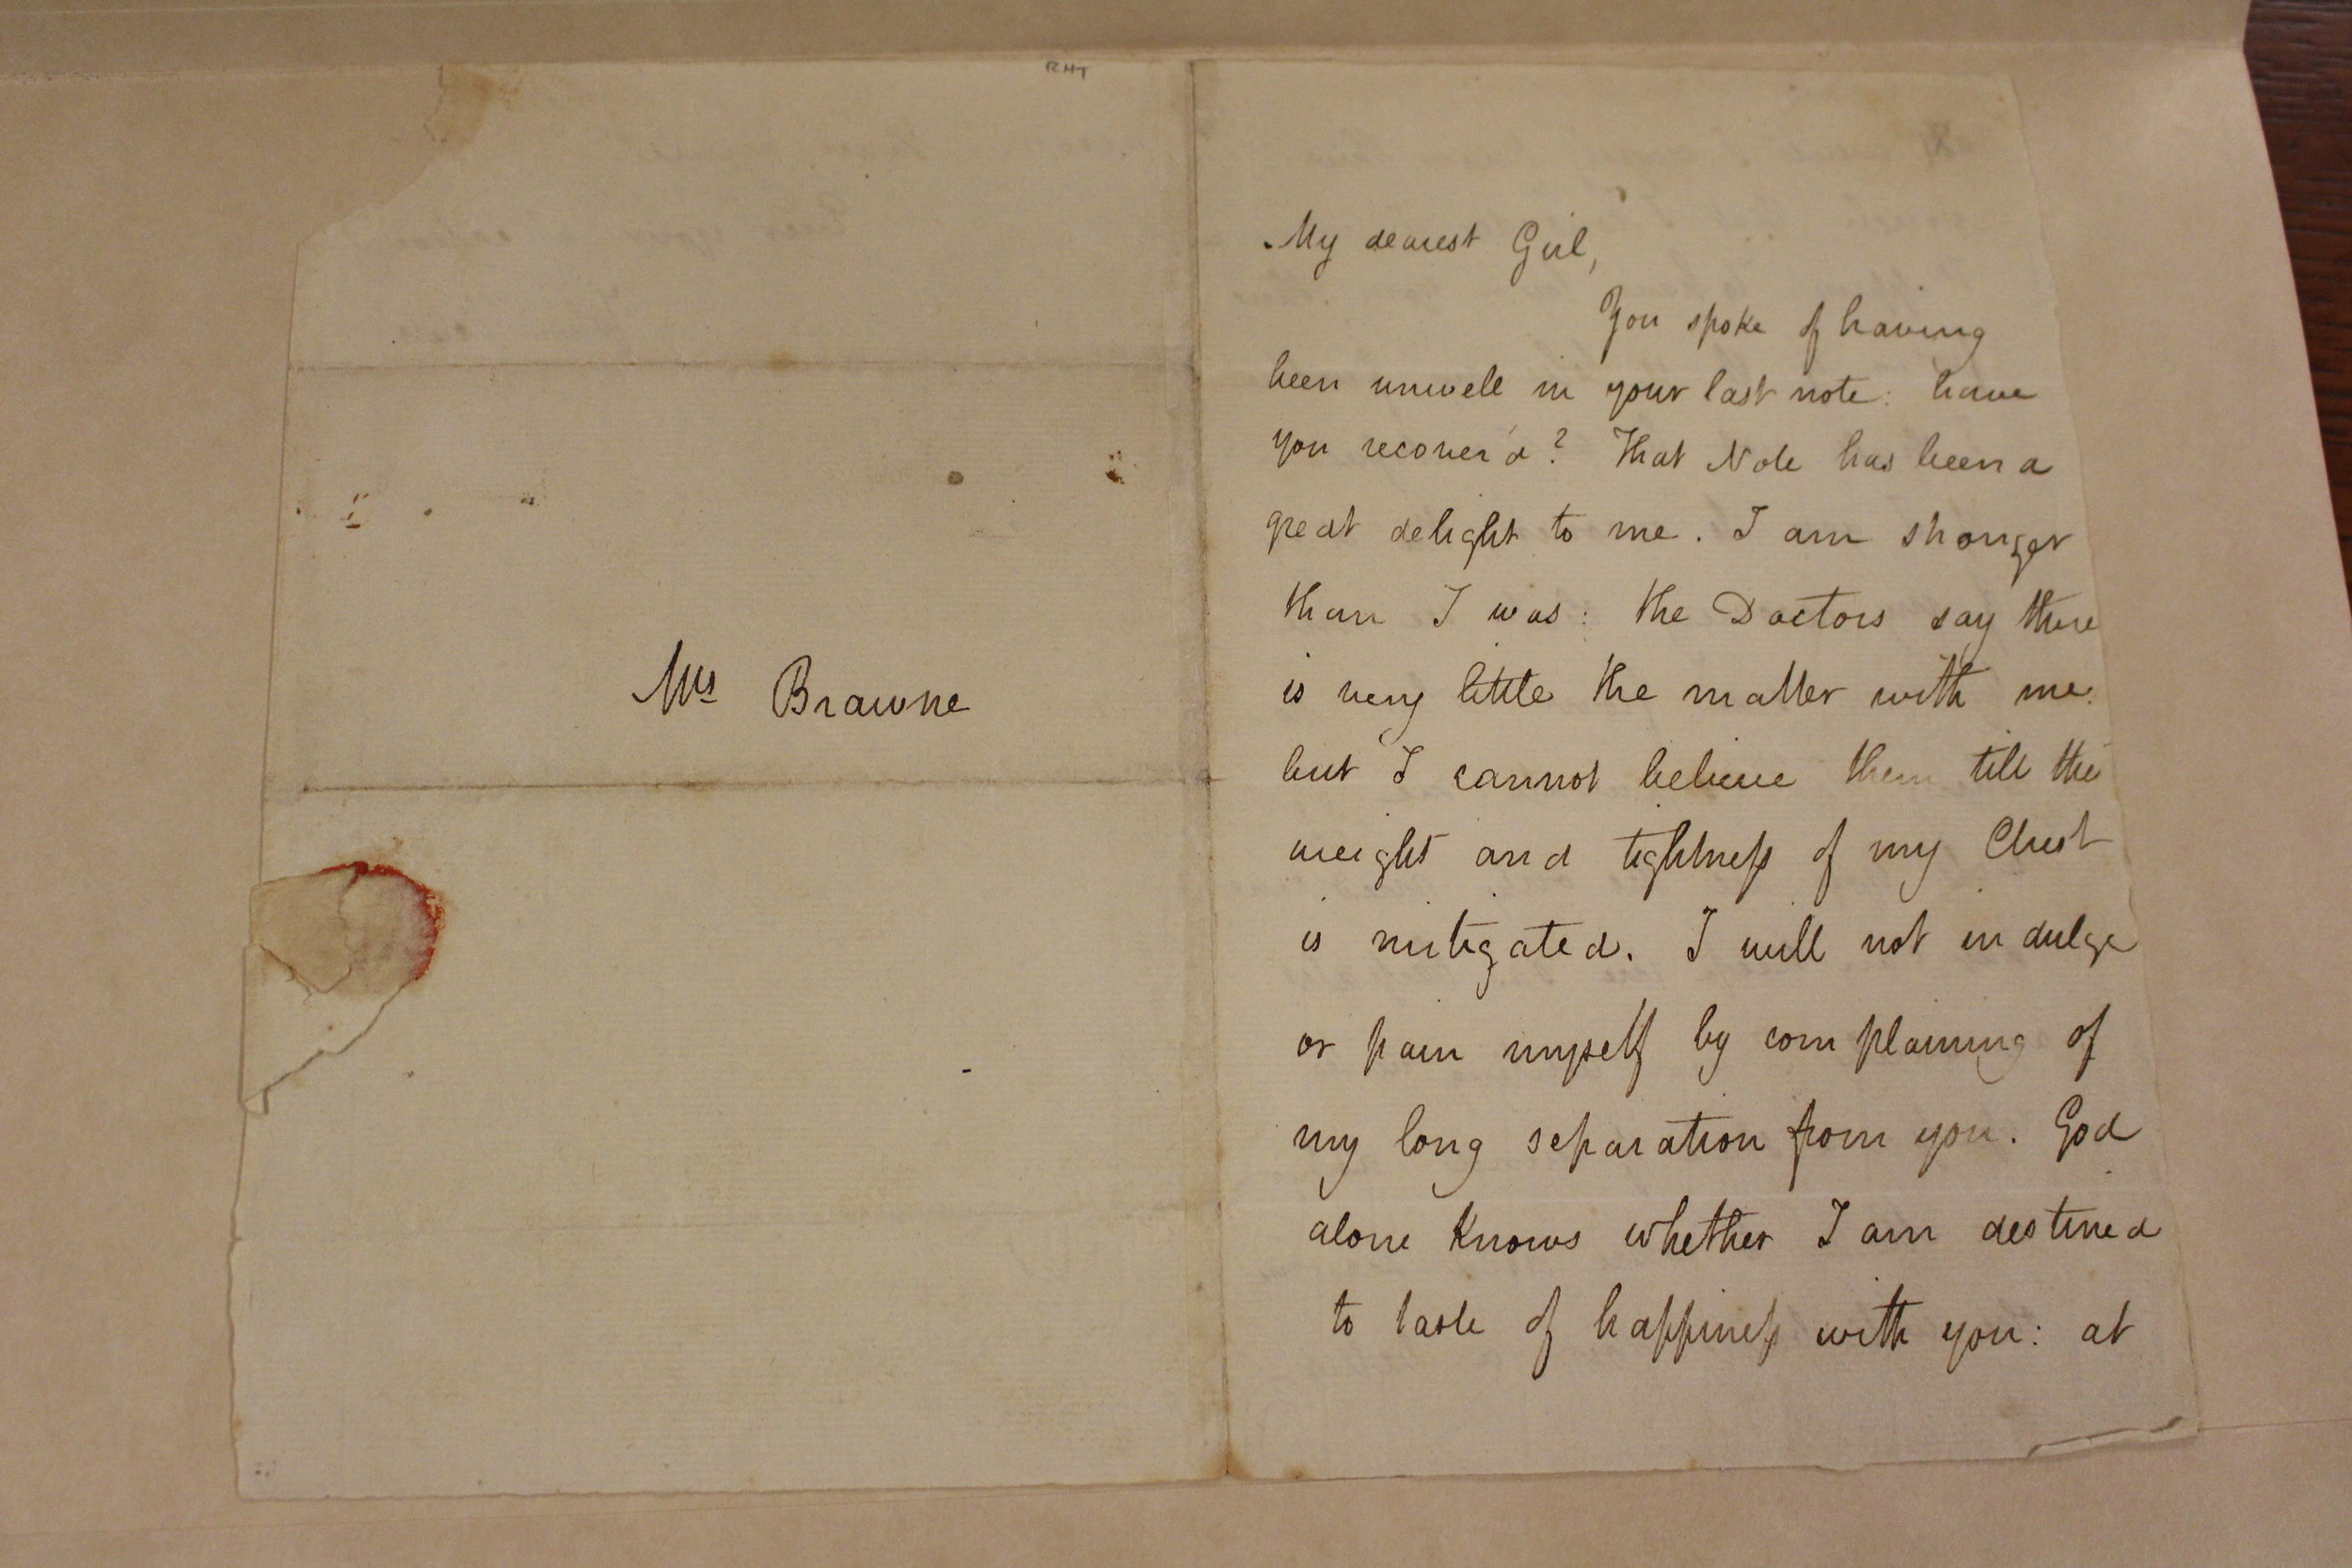 RHT
Mrs Brawne
My dearest Girl,
You spoke of having
been unwell in your last note: have
you recover'd? That Note has been a
great delight to me. I am stronger
than I was: the Doctors say there
is very little the matter with me
but I cannot believe them till the
weight and tightness of my Chest
is mitigated. I will not indulge
or pain myself by complaining of
my long separation from you. God
alone knows whether I am destined
to taste of happiness with you: at